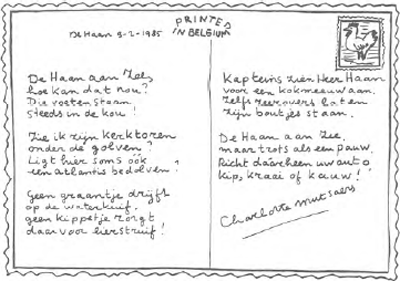 De Haan 9-2-1985
PRINTED
IN BELGIUM
De Haan aan Zee,
hoe kan dat nou?
Die voeten staan
steeds in de kou!
Zie ik zijn kerktoren
onder de golven?
Ligt hier soms óók
een atlantis bedolven?
Geen graantje drijft
op de waterkuif,
geen kippetje zorgt
daar voor eierstruif!
Kapteins zien Heer Haan
voor een kokmeeuw aan.
Zelfs zeerovers laten
zijn boutjes staan.
De Haan aan Zee,
maar trots als een pauw.
Richt daarheen uw auto
kip, kraai of kauw!
Charlotte Mutsaers